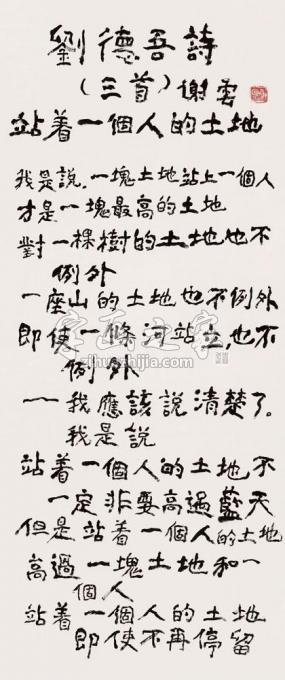 劉德吾詩
（三首）謝雲
站着一個人的土地
我是説，一塊土地站上一個人
才是一塊最高的土地
對一棵樹的土地也不
例外
一座山的土地也不例外
即使一條河站立，也不
例外
——我應該説清楚了。
我是説
站着一個人的土地不
一定非要高過藍天
但是站着一個人的土地
高過一塊土地和一
個人
站着一個人的土地
即使不再停留
zihuashijia.com